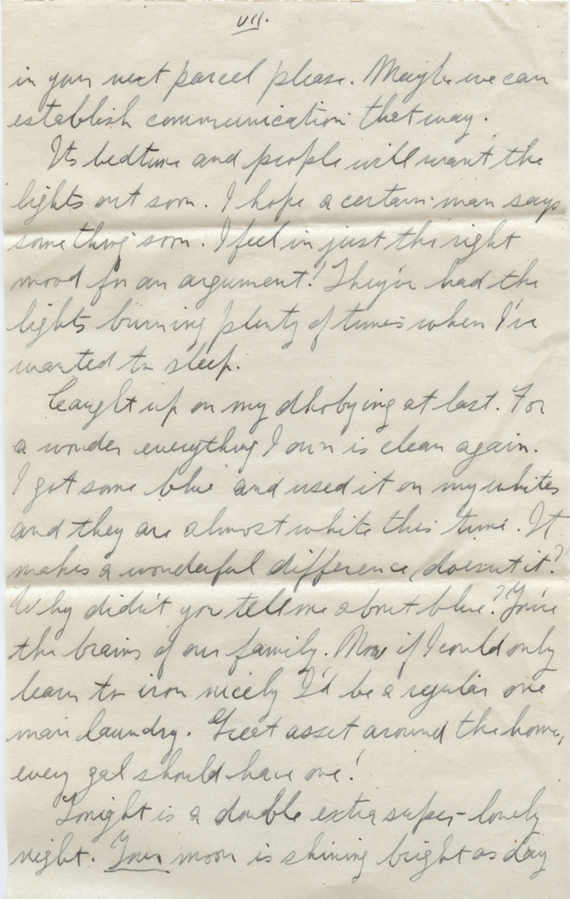 VII.
in your next parcel please. Maybe we can
establish communication that way.
Its bedtime and people will want the
lights out soon. I hope a certain man says
something soon. I feel in just the right
mood for an argument! They've had the
lights burning plenty of times when I've
wanted to sleep.
Caught up on my dhobying at last. For
a wonder everything I own is clean again.
I got some blue and used it on my whites
and they are almost white this time. It
makes a wonderful difference, doesn't it?
Why didn't you tell me about blue? You're
the brains of our family. Now if I could only
learn to iron nicely I'd be a regular one
man laundry. Great asset around the home,
every gal should have one!
Tonight is a double extra super-lovely
night. Your moon is shining bright as day